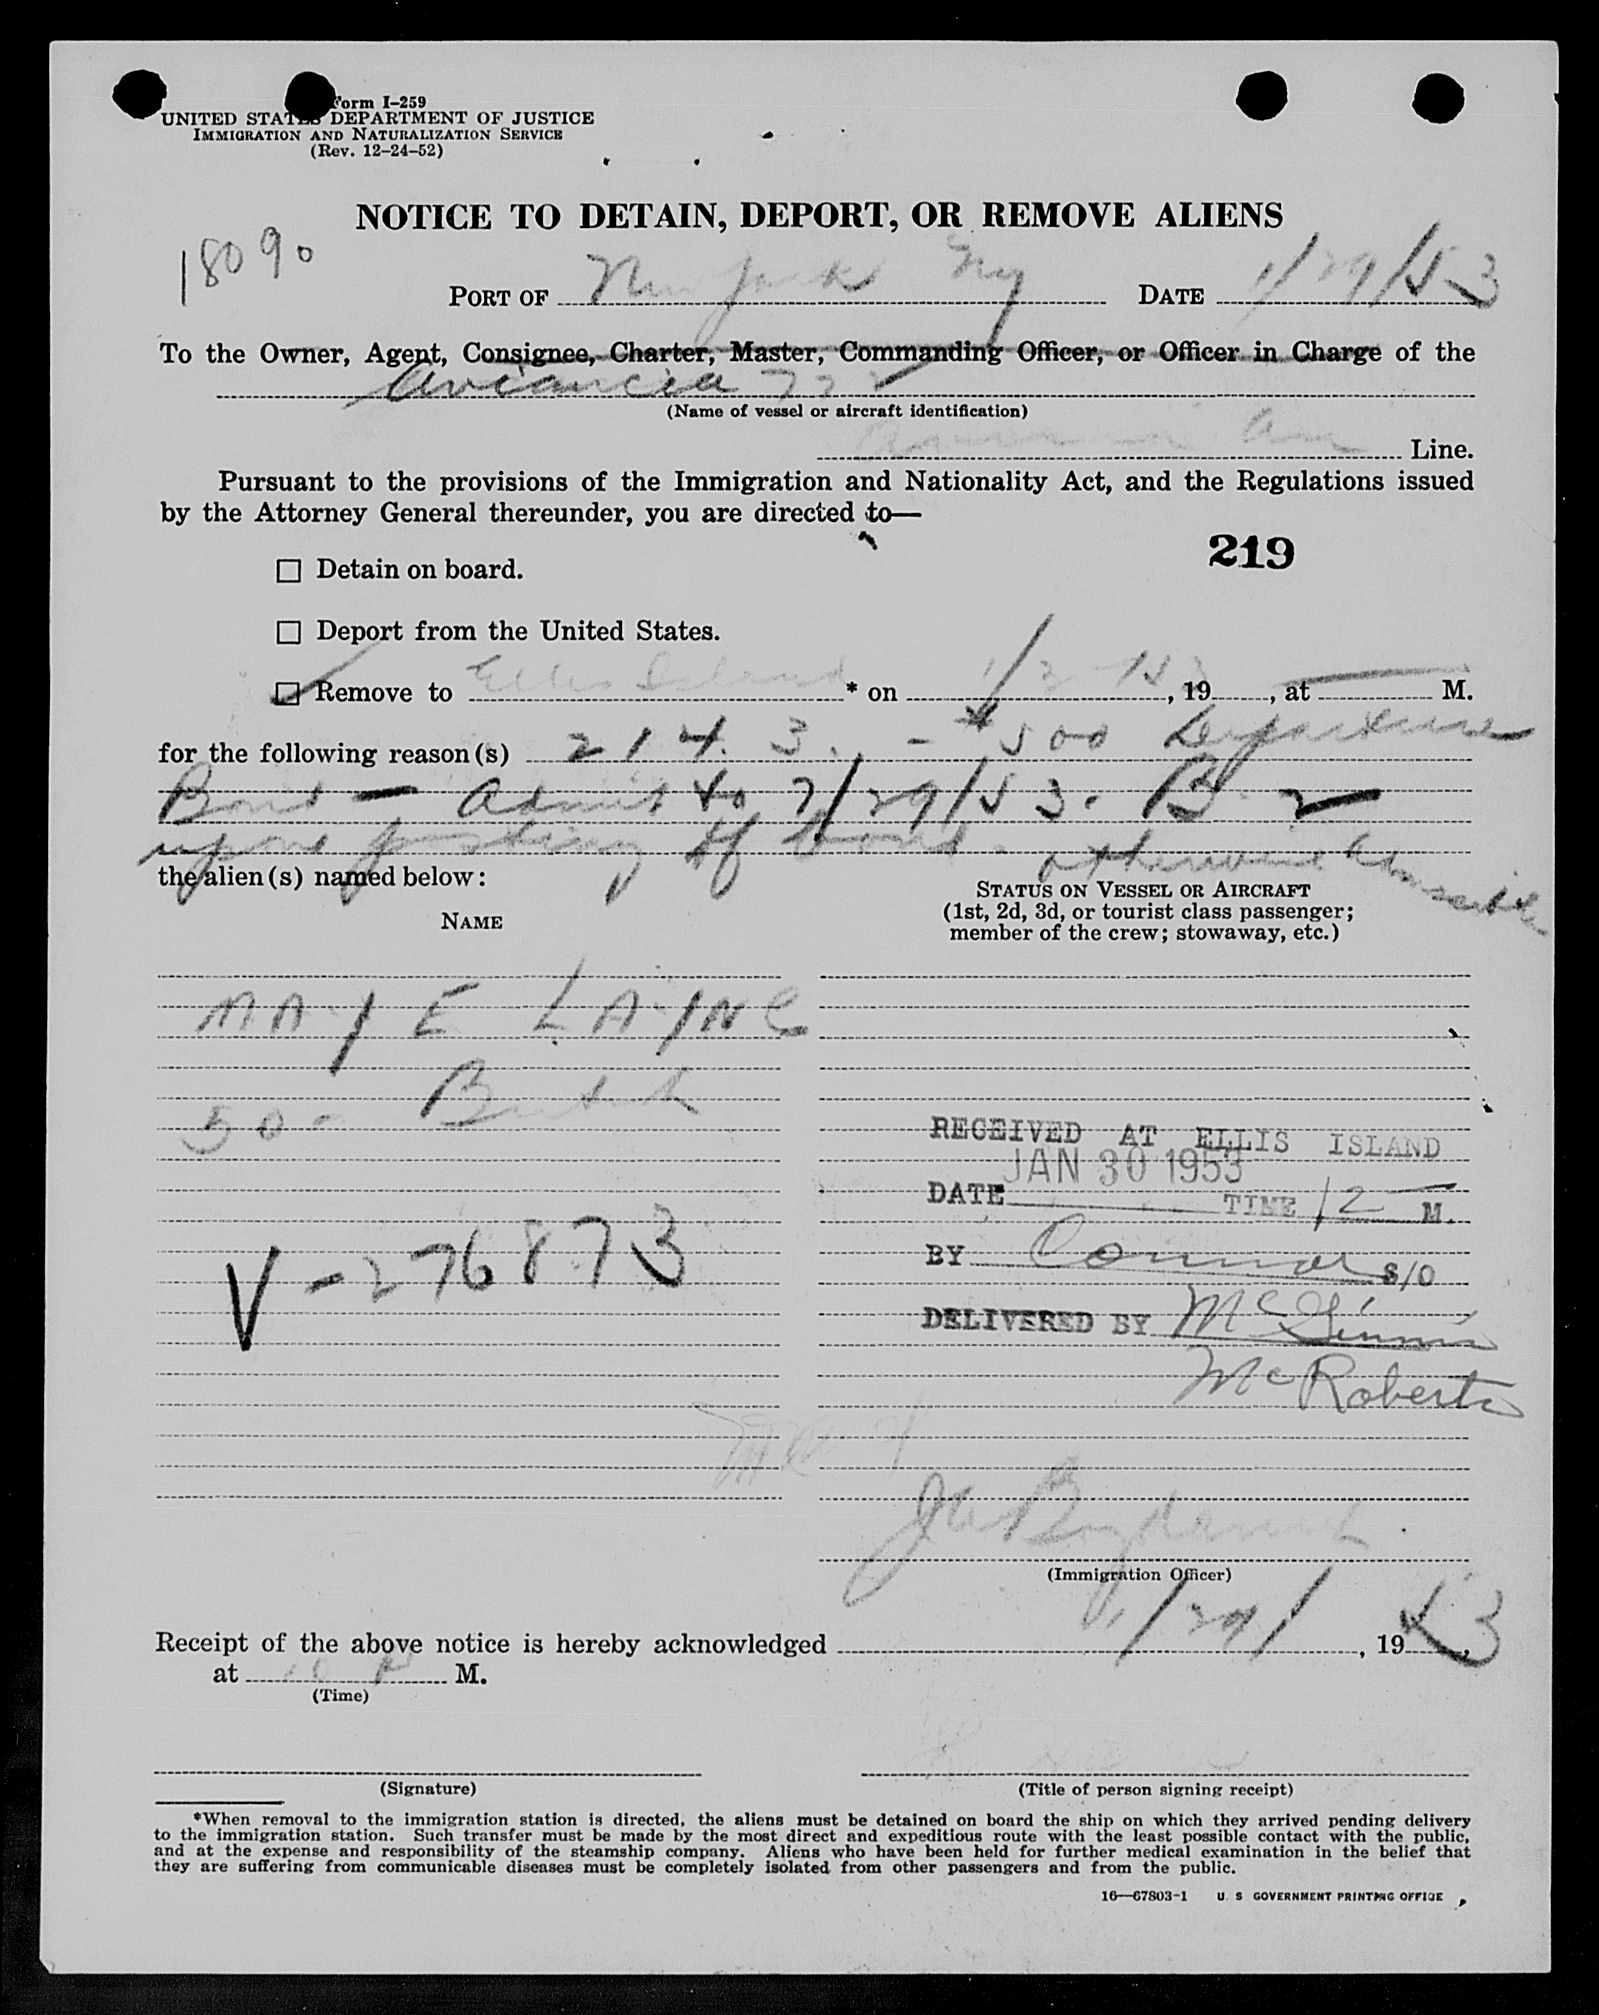 Form I-259
UNITED STATES DEPARTMENT OF JUSTICE
IMMIGRATION AND NATURALIZATION SERVICE
(Rev. 12-24-52)
NOTICE TO DETAIN, DEPORT, OR REMOVE ALIENS
18090
PORT OF New York NY DATE 1/29/53
To the Owner, Agent, Consignee, Charter, Master, Commanding Officer, or Officer in Charge of the
(Name of vessel or aircraft identification)
Line.
Pursuant to the provisions of the Immigration and Nationality Act, and the Regulations issued
by the Attorney General thereunder, you are directed to—
219
☐ Detain on board.
☐ Deport from the United States.
☑ Remove to Ellis Island * on , 19 , at M.
for the following reason(s) 214.3. - $500 Departure
Bond — Admit to 7/29/53. B-2
upon posting of bond. otherwise
the alien(s) named below:
NAME
STATUS ON VESSEL OR AIRCRAFT
(1st, 2d, 3d, or tourist class passenger;
member of the crew; stowaway, etc.)
MAJE LAING
50 - British
RECEIVED AT ELLIS ISLAND
JAN 30 1953
DATE TIME 12 M.
BY Connor S/O
V-276873
DELIVERED BY McGinnis
McRoberts
(Immigration Officer)
Receipt of the above notice is hereby acknowledged 1/29/, 1953,
at 10 P M.
(Time)
(Signature)
(Title of person signing receipt)
*When removal to the immigration station is directed, the aliens must be detained on board the ship on which they arrived pending delivery
to the immigration station. Such transfer must be made by the most direct and expeditious route with the least possible contact with the public,
and at the expense and responsibility of the steamship company. Aliens who have been held for further medical examination in the belief that
they are suffering from communicable diseases must be completely isolated from other passengers and from the public.
16—67803-1 U. S. GOVERNMENT PRINTING OFFICE